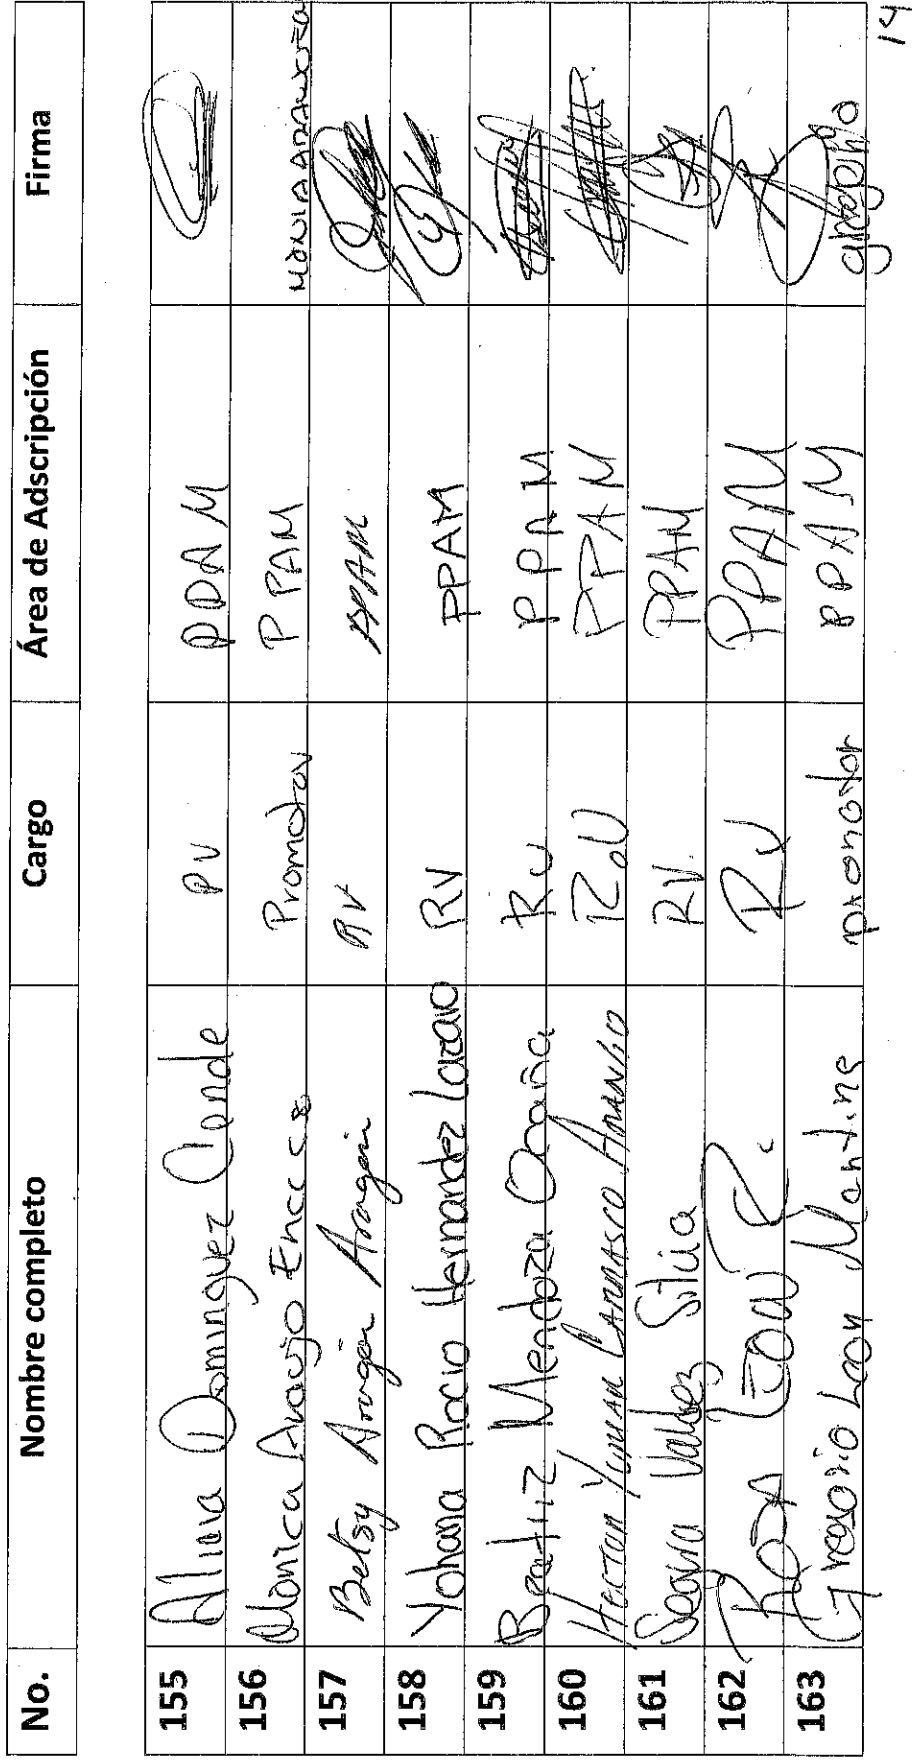 No. Nombre completo Cargo Área de Adscripción Firma
155 Alicia Dominguez Conde PV PPAM
156 Monica Araujo Promotor PPAM
157 Betsy Aragón Aragón RV PPAM
158 Yohana Rocio Hernandez Lazaro RV PPAM
159 Beatriz Mendoza Ocaña Rv PPAM
160 Hector Carrasco R.V PPAM
161 Valdez Silvia RV. PPAM
162 Rosa León R. RV PPAM
163 Gregorio Leon Martine promotor PPAM
14